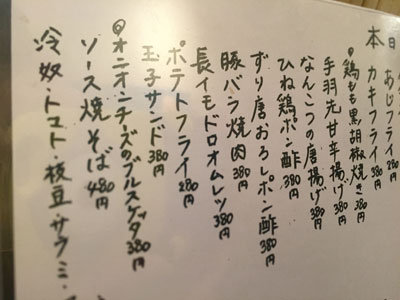 本日
あじフライ 280円
カキフライ 380円
鶏もも黒胡椒焼き 380円
手羽先甘辛揚げ 380円
なんこつの唐揚げ 380円
ひね鶏ポン酢 380円
ずり唐おろしポン酢 380円
豚バラ焼肉 380円
長イモドロオムレツ 380円
ポテトフライ 280円
玉子サンド 380円
オニオンチーズのブルスケッタ 380円
ソース焼そば 480円
冷奴・トマト・枝豆